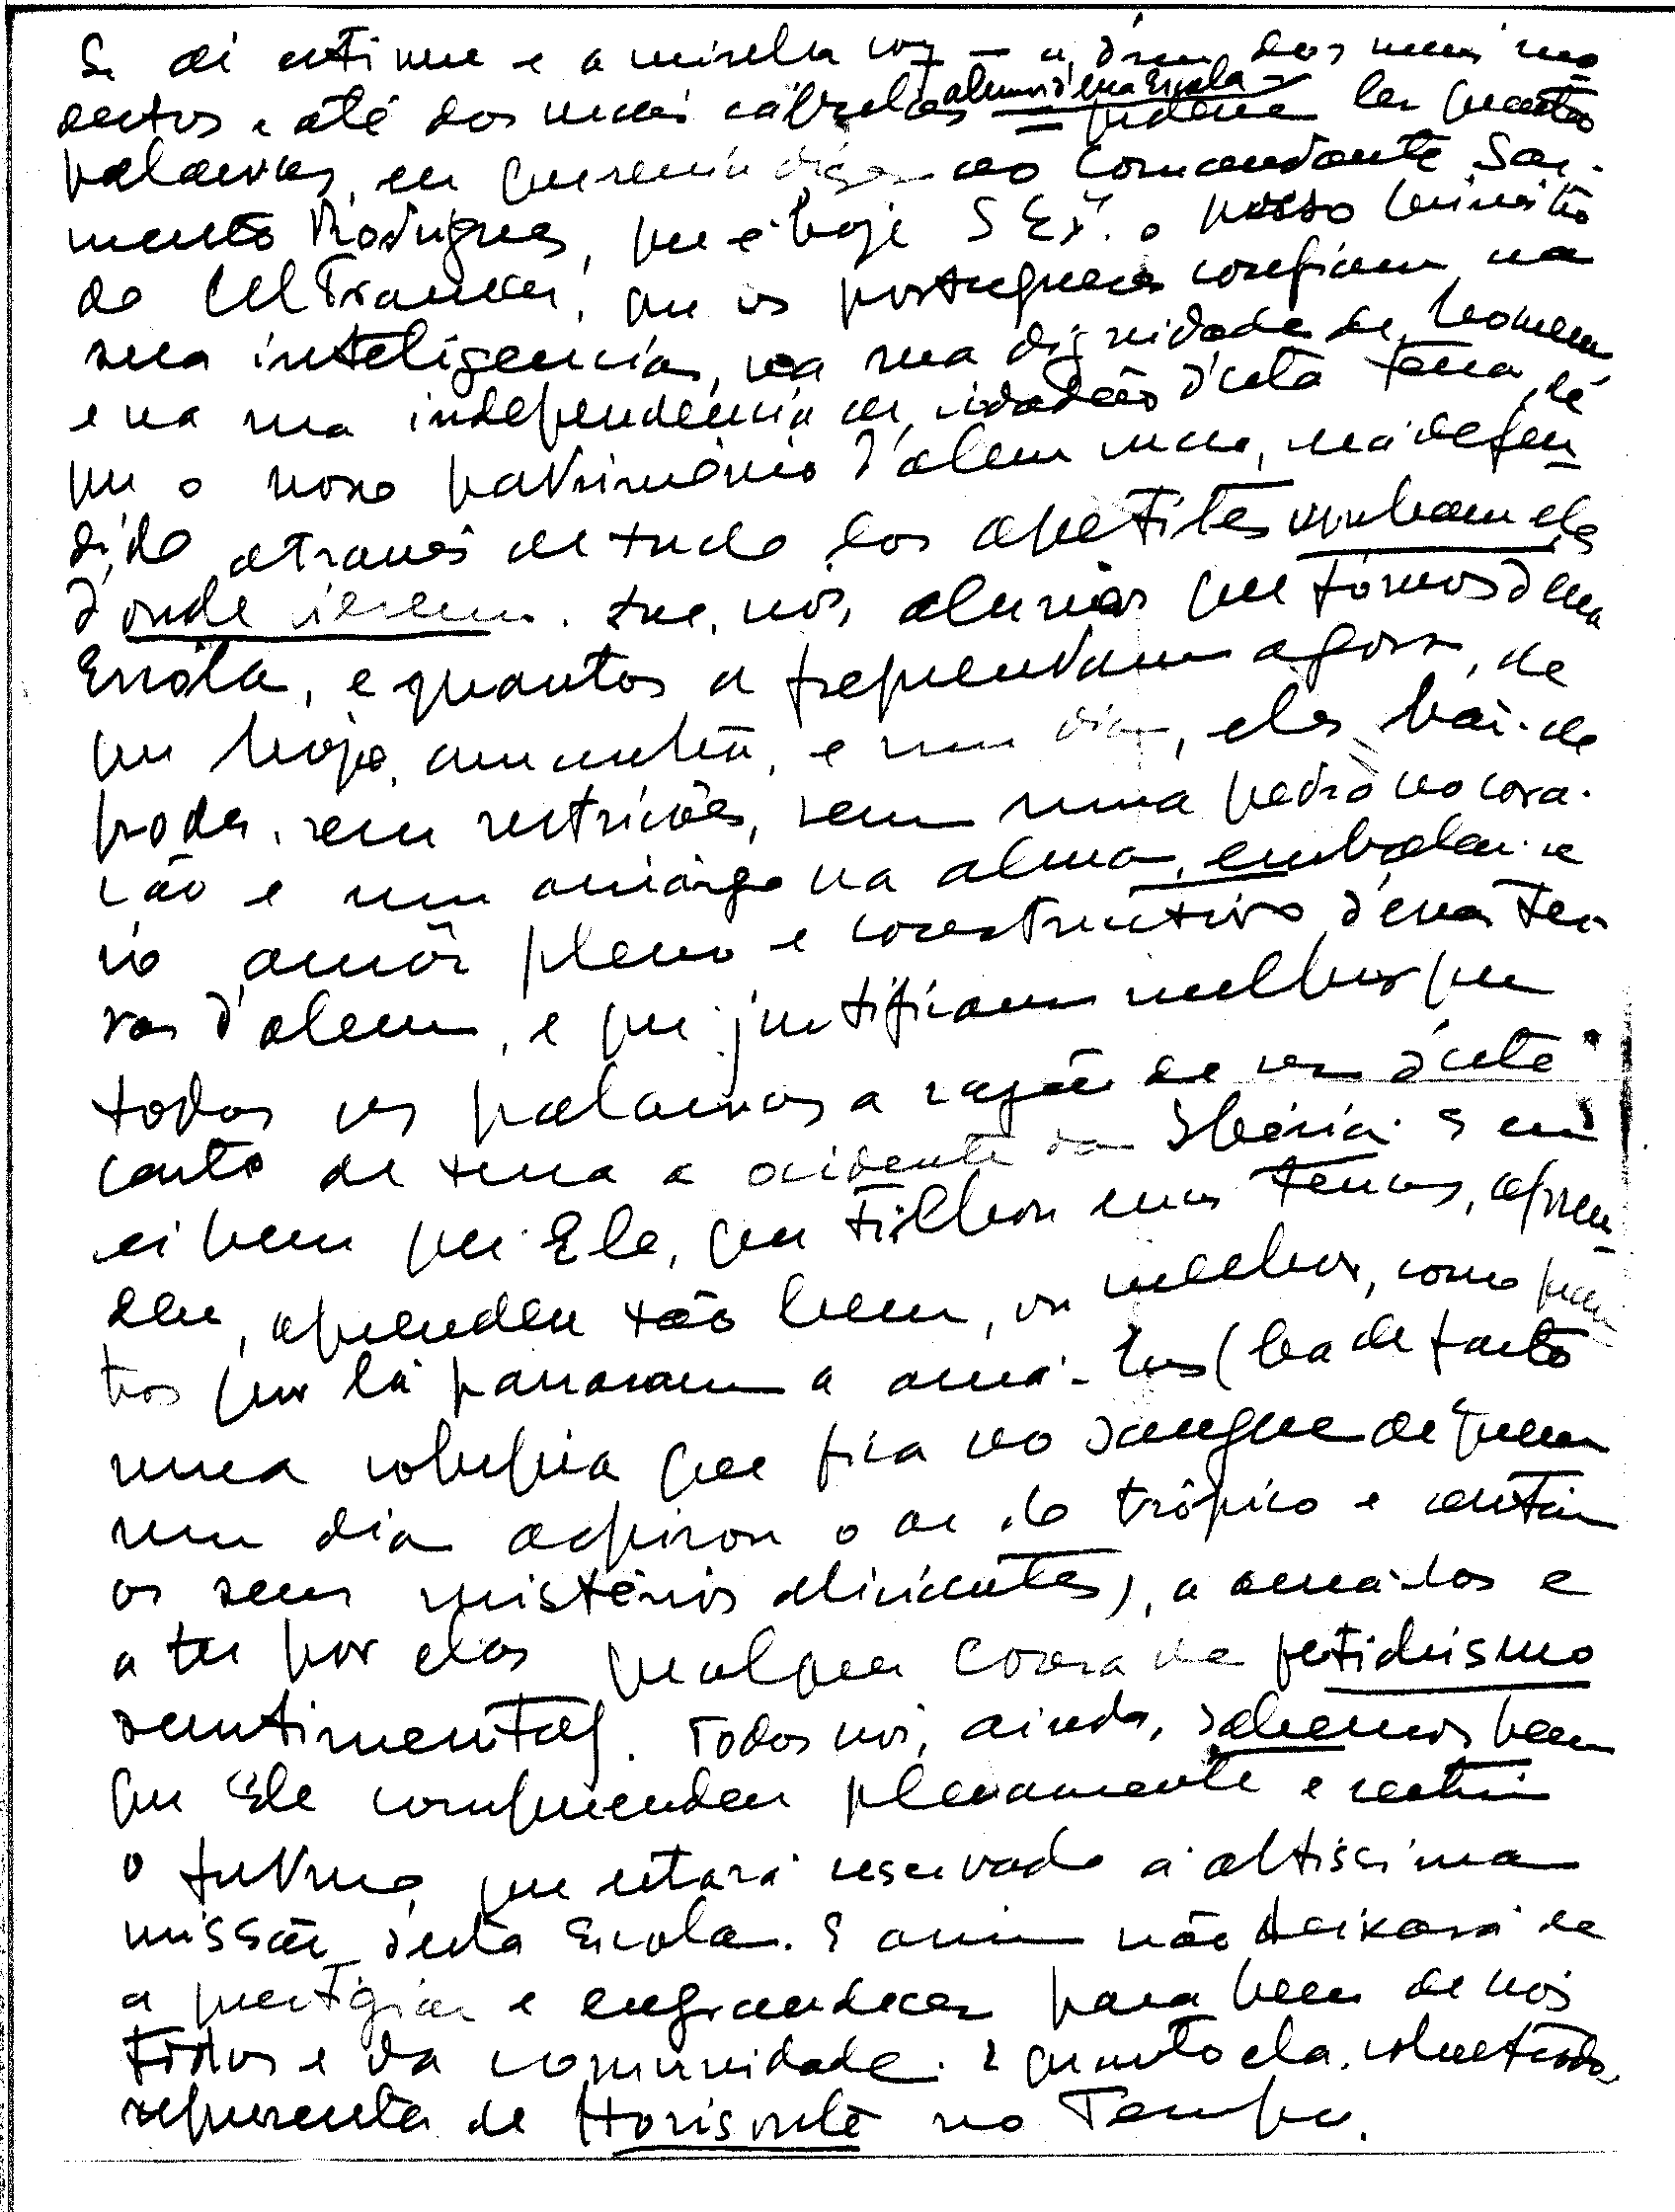 Se aí estivesse e a minha voz — a dum dos mais mo
destos e até dos mais cábulas alunos d'essa Escola — pudesse ler quatro
palavras, eu quereria dizer ao Comandante Sar-
mento Rodrigues, que é hoje S. Exª. o nosso Ministro
do Ultramar, que os portugueses confiam na
sua inteligencia, na sua dignidade de homem
e na sua independência de cidadão d'esta terra, de
que o nosso património d'alem mar, será defen
dido através de tudo dos apetites venham eles
d'onde vierem. Que, nós, alunos que fômos d'essa
Escola, e quantos a frequentam agora, de
que hoje, amanhã, e num dia, eles hão-de
poder, sem restrições, sem uma pedra no cora-
ção e um amargo na alma, embalar-se
no amôr pleno e construtivo d'essas ter
ras d'alem, e que justificam melhor que
todas as palavras a razão de ser d'este
canto de terra a ocidente da Ibéria. E eu
sei bem que Ele, que trilhou essas terras, apren
deu, aprendeu tão bem, ou melhor, como quan
tos por lá passaram a amá-las (ha de facto
uma volupia que fica no sangue de quem
um dia aspirou o ar do trópico e sentiu
os seus mistérios aliciantes), a amá-las e
a ter por elas qualquer coisa de fetichismo
sentimental. Todos nós, ainda, sabemos bem
que Ele compreendeu plenamente e sentiu
o futuro que estará reservado á altissima
missão desta Escola. E assim não deixará de
a prestigiar e engrandecer para bem de nós
todos e da comunidade. E quanto ela, sobretudo,
representa de Horisonte no Tempo.